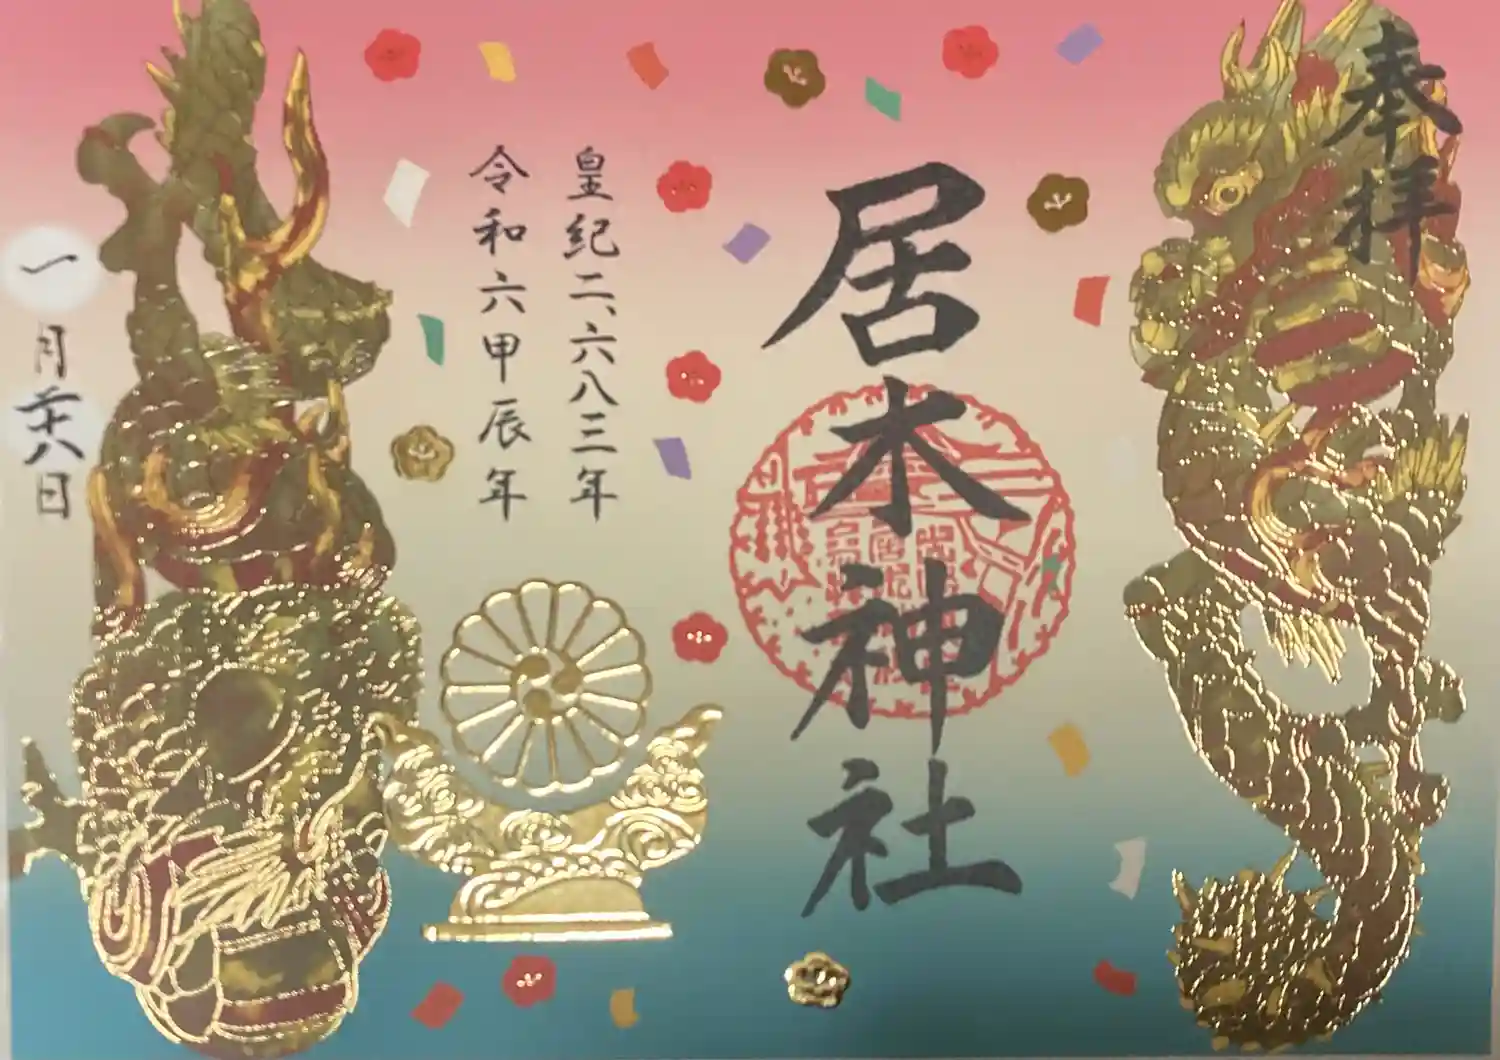 奉拝
居木神社
皇紀二、六八三年
令和六甲辰年
一月二十八日